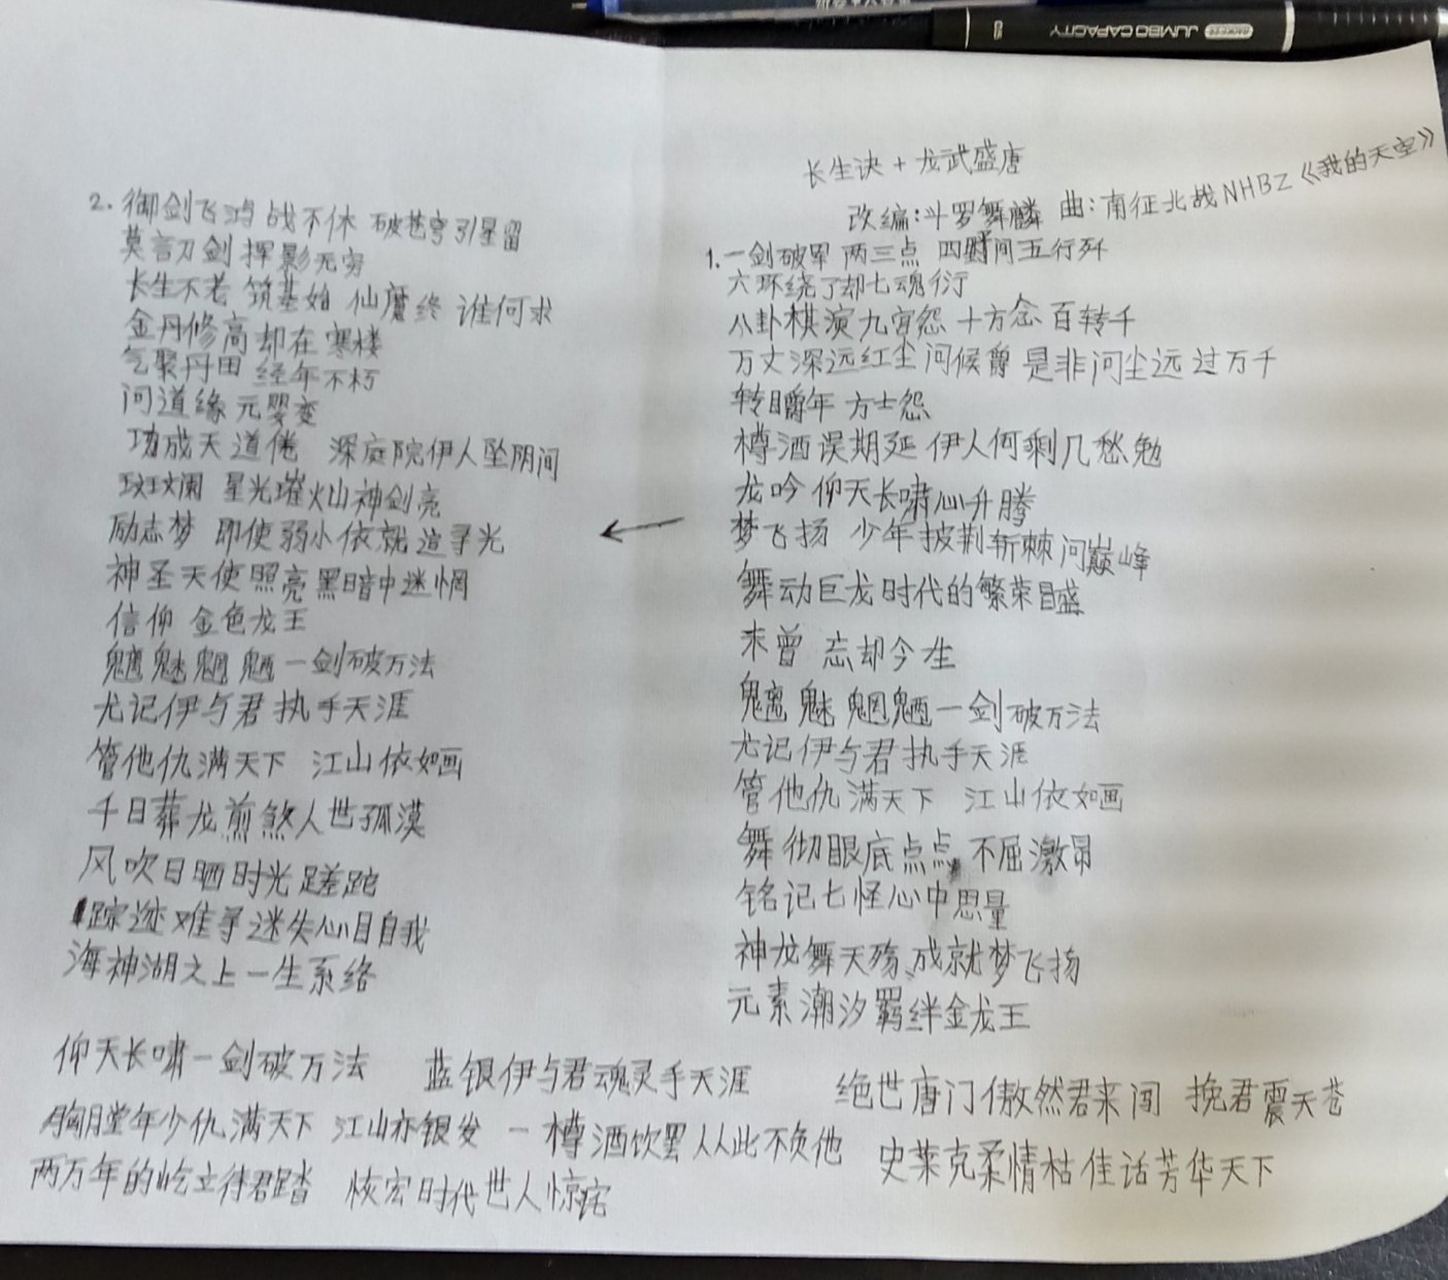 JUMBO CAPACITY
长生诀 + 龙武盛唐
改编:斗罗舞麟 曲:南征北战NHBZ《我的天空》
1.一剑破军 两三点 四时间五行歼
六环绕了却七魂衍
八卦棋演九宫怨 十方念 百转千
万丈深远红尘问候爵 是非问尘远 过万千
转瞬年 方士怨
樽酒误期延 伊人何剩几愁勉
龙吟 仰天长啸心升腾
梦飞扬 少年披荆斩棘问巅峰
舞动巨龙时代的繁荣昌盛
未曾 忘却今生
魑 魅 魍魉一剑破万法
尤记伊与君执手天涯
管他仇满天下 江山依如画
舞彻眼底点点 不屈激昂
铭记七怪心中思量
神龙舞天殇 成就梦飞扬
元素潮汐羁绊金龙王
2. 御剑飞鸿 战不休 破苍穹引星留
莫言刀剑 挥影无穷
长生不老 筑基始 仙魔终 谁何求
金丹修高却在寒楼
气聚丹田 经年不朽
问道缘 元婴变
功成天道倦 深庭院伊人坠阴间
玟玟阑 星光璀灿神剑亮
励志梦 即使弱小依就追寻光
神圣天使照亮黑暗中迷惘
信仰 金色龙王
魑魅魍魉一剑破万法
尤记伊与君执手天涯
管他仇满天下 江山依如画
千日葬龙煎煞人世孤漠
风吹日晒时光蹉跎
踪迹难寻迷失心目自我
海神湖之上一生系络
仰天长啸一剑破万法 蓝银伊与君魂灵手天涯 绝世唐门傲然君来闯 挽君震天苍
胸膛年少仇满天下 江山亦银发 一樽酒饮罢从此不负他 史莱克柔情枯佳话芳华天下
两万年的屹立待君踏 恢宏时代世人惊诧